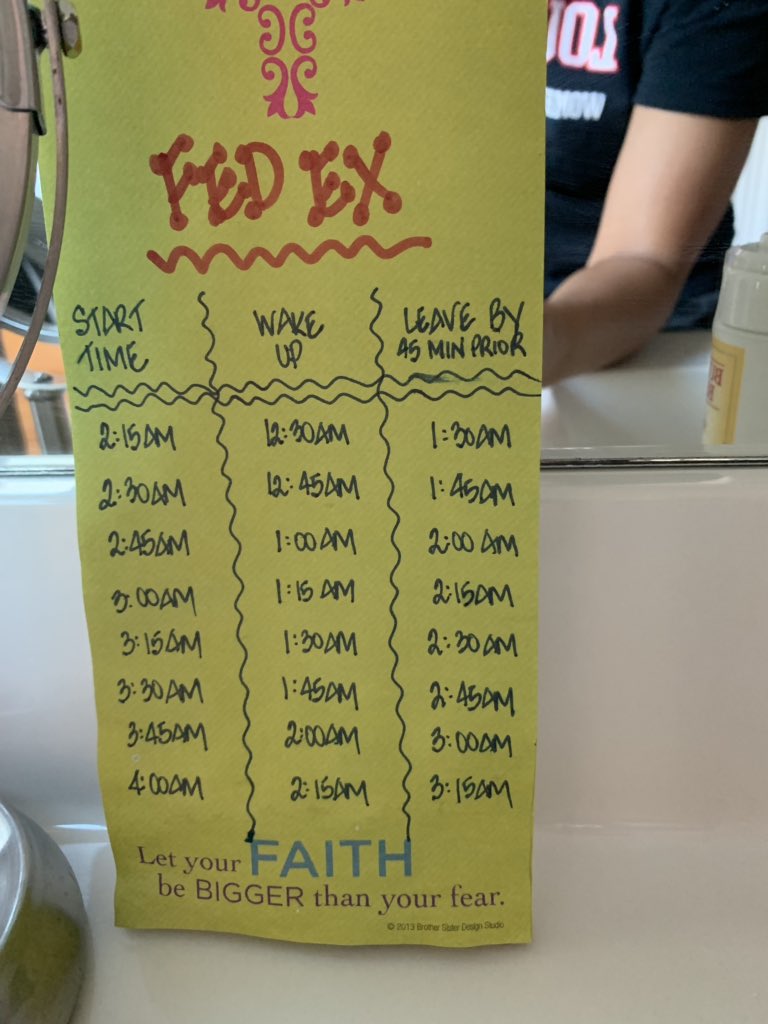 FED EX
START TIME WAKE UP LEAVE BY 45 MIN PRIOR
2:15AM 12:30AM 1:30AM
2:30AM 12:45AM 1:45AM
2:45AM 1:00AM 2:00AM
3:00AM 1:15AM 2:15AM
3:15AM 1:30AM 2:30AM
3:30AM 1:45AM 2:45AM
3:45AM 2:00AM 3:00AM
4:00AM 2:15AM 3:15AM
Let your FAITH
be BIGGER than your fear.
© 2013 Brother Sister Design Studio